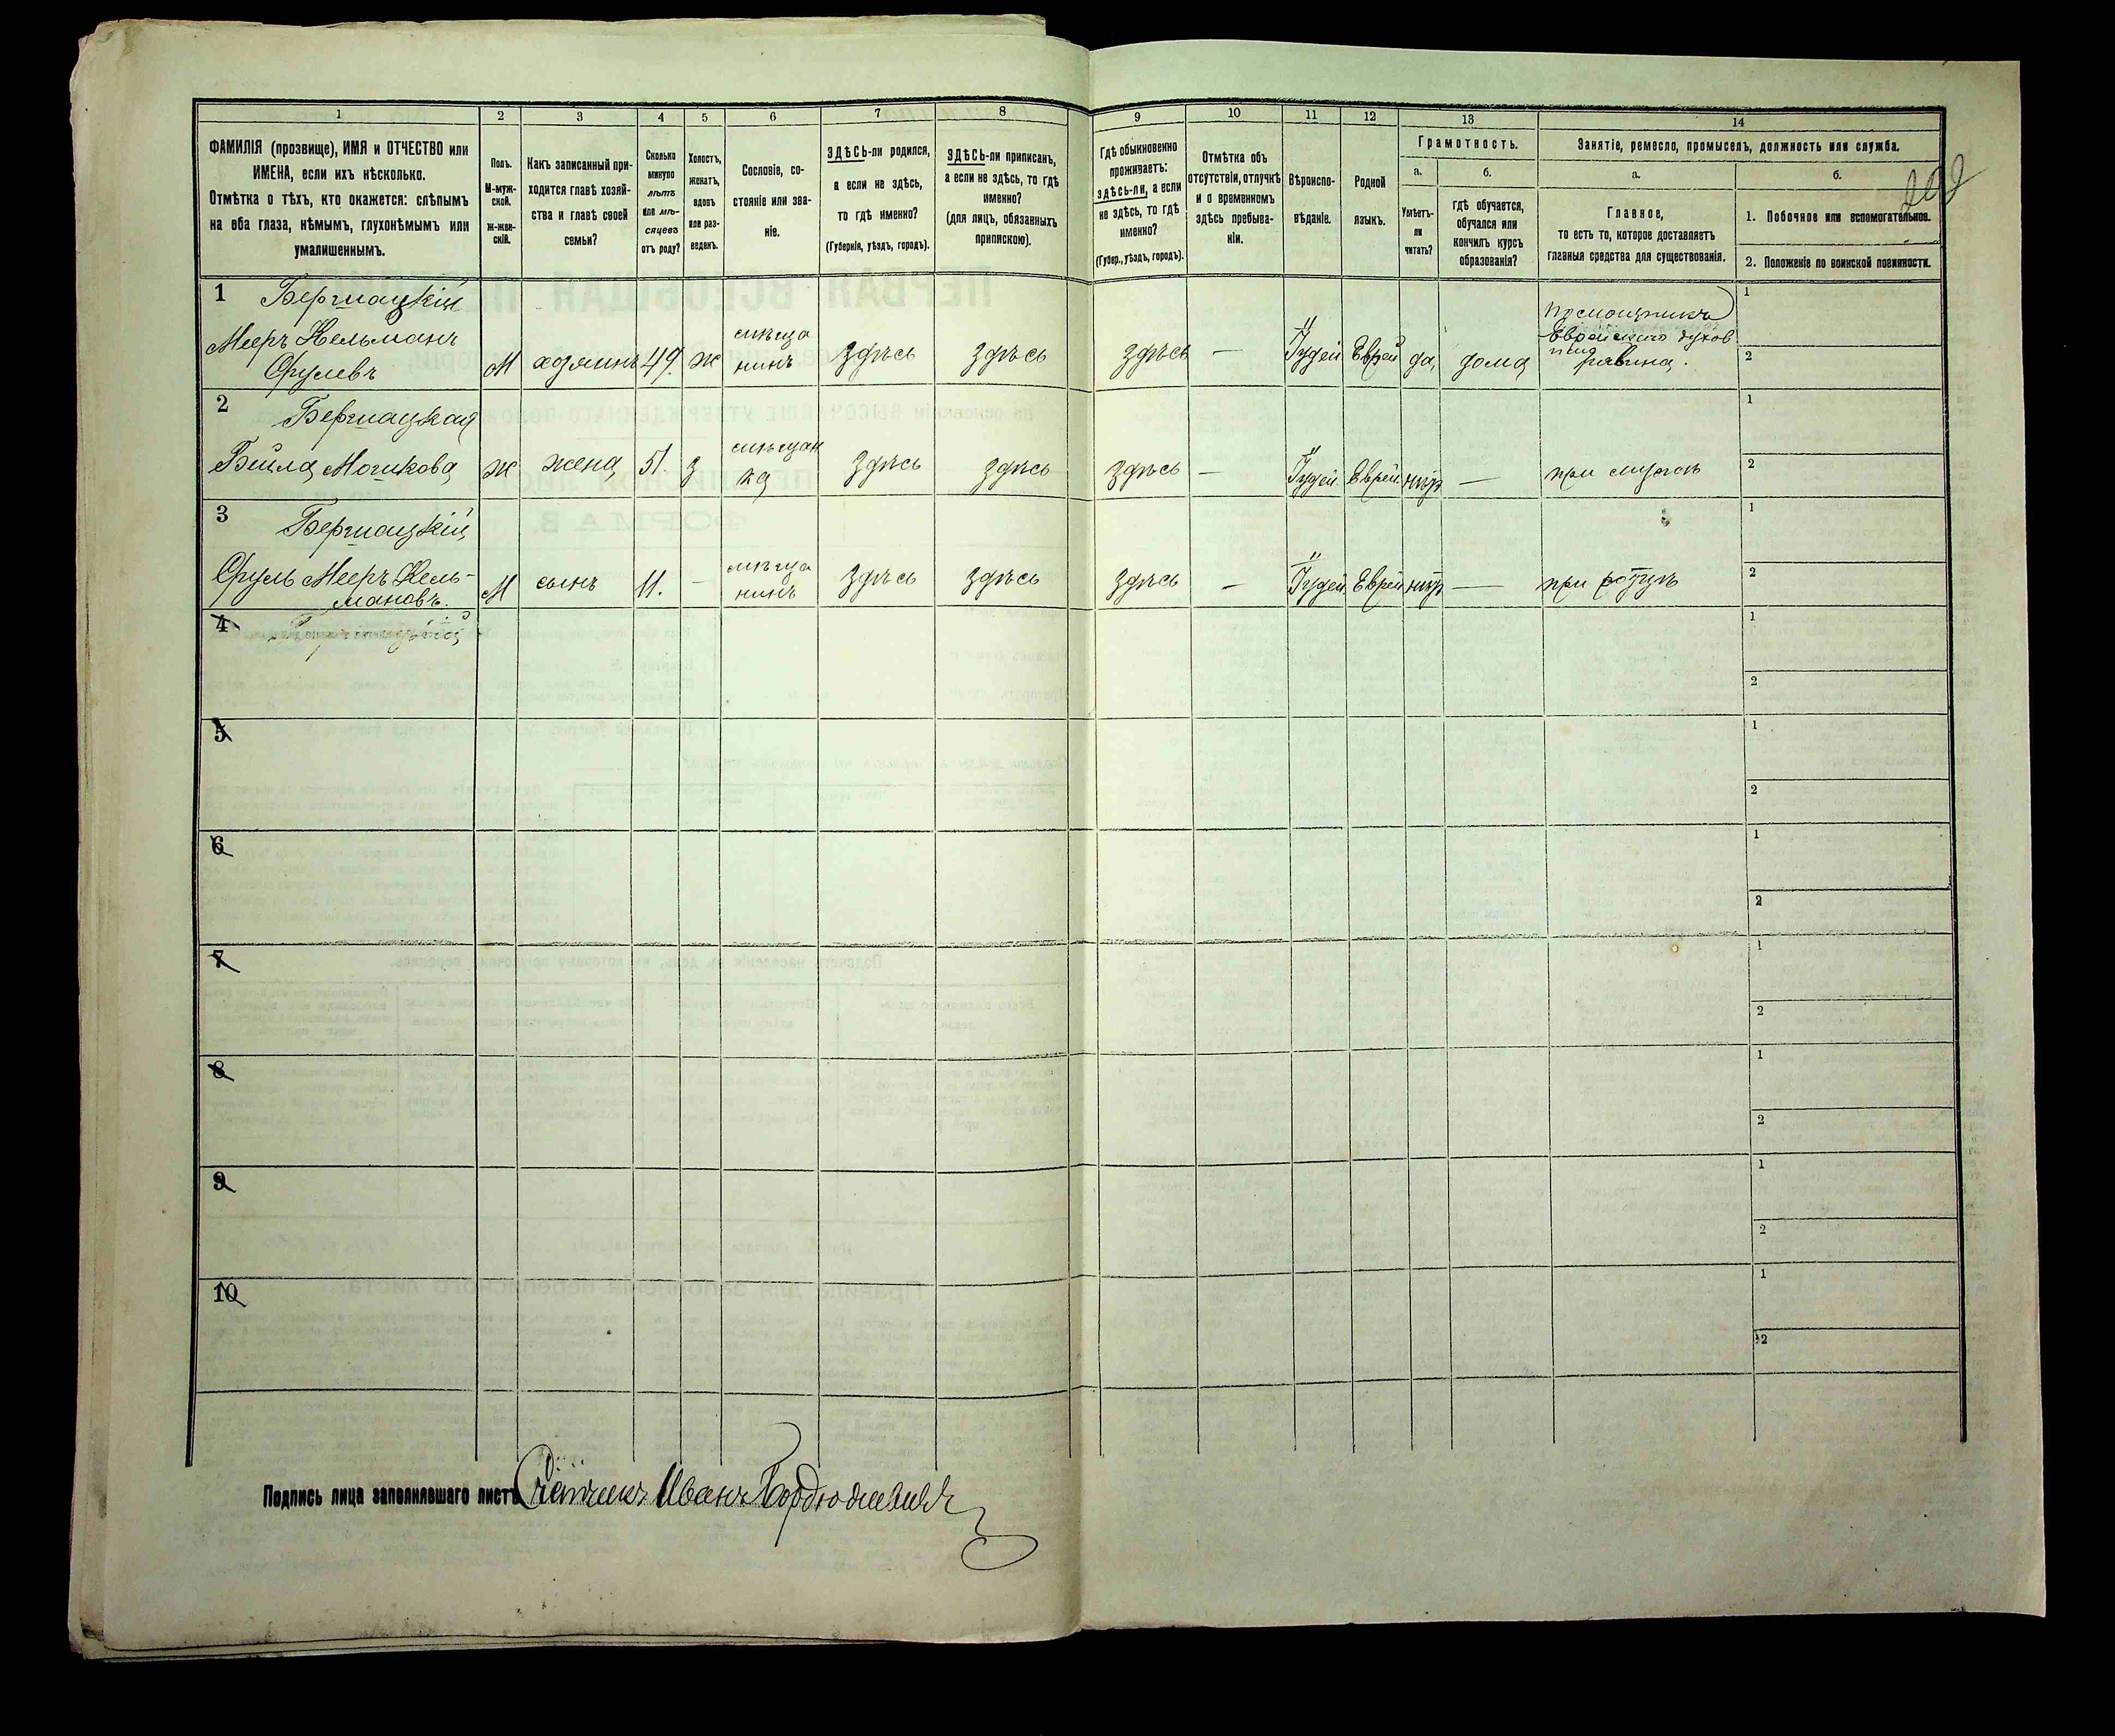 1 2 3 4 5 6 7 8 9 10 11 12 13 14
ФАМИЛІЯ (прозвище), ИМЯ и ОТЧЕСТВО или
ИМЕНА, если ихъ нѣсколько.
Отмѣтка о тѣхъ, кто окажется: слѣпымъ
на оба глаза, нѣмымъ, глухонѣмымъ или
умалишеннымъ.
Полъ.
М-муж-
ской.
Ж-жен-
скій.
Какъ записанный при-
ходится главѣ хозяй-
ства и главѣ своей
семьи?
Сколько
минуло
лѣтъ
или мѣ-
сяцевъ
отъ роду?
Холостъ,
женатъ,
вдовъ
или раз-
веденъ.
Сословіе, со-
стояніе или зва-
ніе.
ЗДѢСЬ-ли родился,
а если не здѣсь,
то гдѣ именно?
(Губернія, уѣздъ, городъ).
ЗДѢСЬ-ли приписанъ,
а если не здѣсь, то гдѣ
именно?
(для лицъ, обязанныхъ
припискою).
Гдѣ обыкновенно
проживаетъ:
здѣсь-ли, а если
не здѣсь, то гдѣ
именно?
(Губер., уѣздъ, городъ).
Отмѣтка объ
отсутствіи, отлучкѣ
и о временномъ
здѣсь пребыва-
ніи.
Вѣроиспо-
вѣданіе.
Родной
языкъ.
Грамотность.
а.
Умѣетъ-
ли
читать?
б.
гдѣ обучается,
обучался или
кончилъ курсъ
образованія?
Занятіе, ремесло, промыселъ, должность или служба.
а.
Главное,
то есть то, которое доставляетъ
главныя средства для существованія.
б.
1. Побочное или вспомогательное.
2. Положеніе по воинской повинности.
1 Бершацкій
Мееръ Кельманъ
Срулевъ
М
хозяинъ
49.
ж
мѣща
нинъ
здѣсь
здѣсь
здѣсь
—
Іудей
Еврей
да
дома
Помощникъ
Еврейского духов
наго
равина.
1
2
2 Бершацкая
Бейла Мошкова
ж
жена
51.
з
мѣщан
ка
здѣсь
здѣсь
здѣсь
—
Іудей
Еврей
нѣтъ
—
при мужѣ
1
2
3 Бершацкій
Сруль Мееръ Кель-
мановъ.
М
сынъ
11.
—
мѣща
нинъ
здѣсь
здѣсь
здѣсь
—
Іудей
Еврей
нѣтъ
—
при
1
2
4
1
2
5
1
2
6
1
2
7
1
2
8
1
2
9
1
2
10
1
2
Подпись лица заполнявшаго листъ Счетчикъ Иванъ